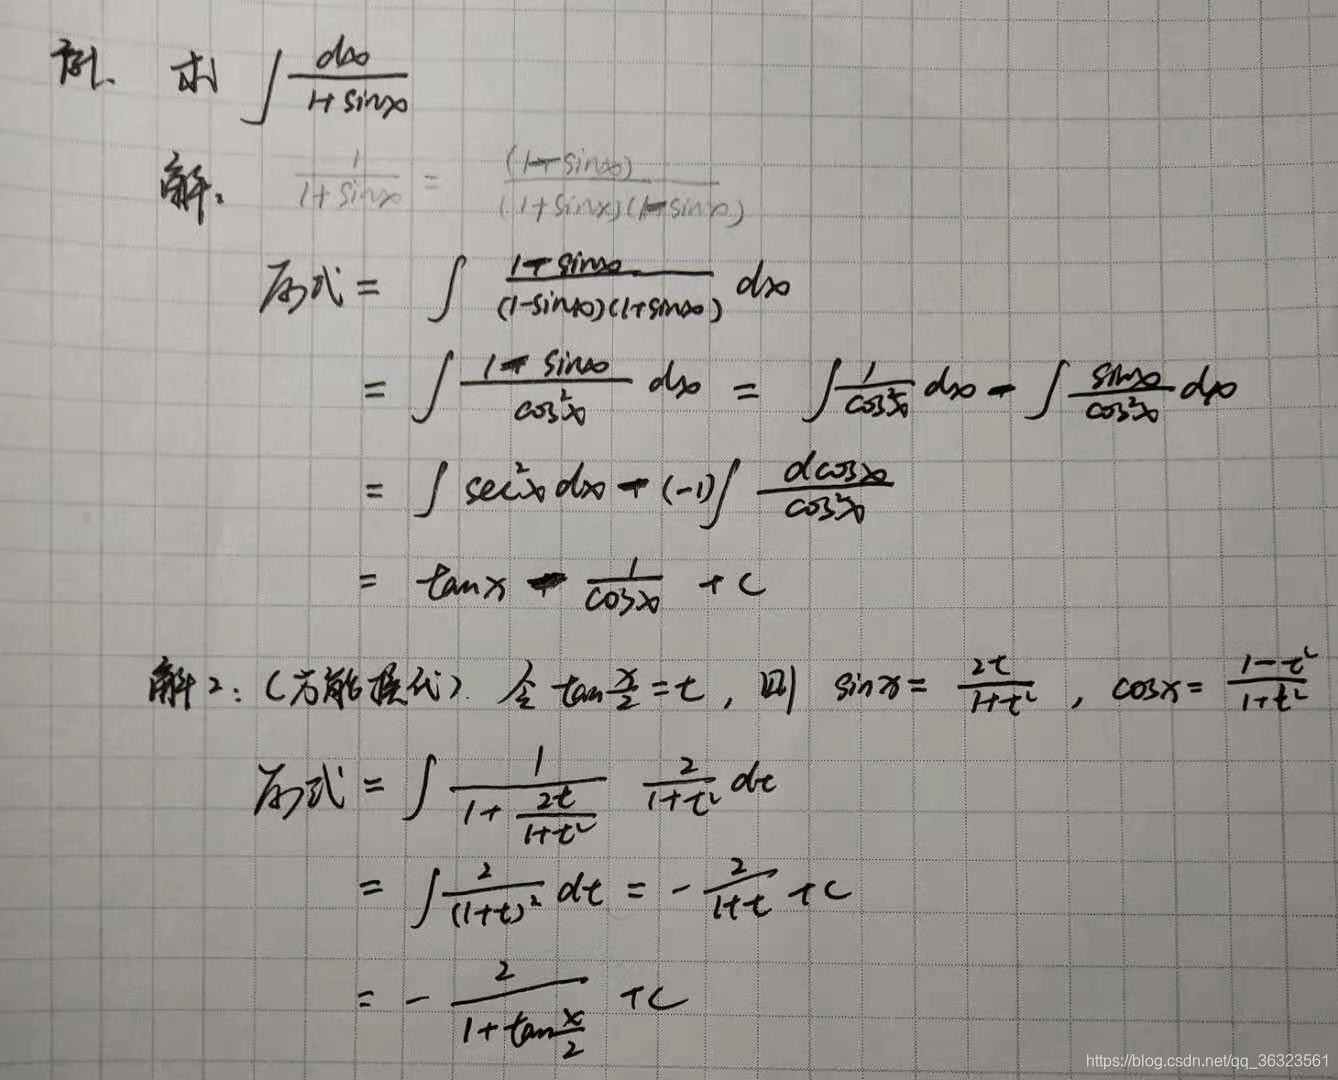 例. 求 ∫ dx/(1+sinx)
解. 1/(1+sinx) = (1-sinx)/((1+sinx)(1-sinx))
原式 = ∫ (1-sinx)/((1-sinx)(1+sinx)) dx
= ∫ (1-sinx)/cos²x dx = ∫ 1/cos²x dx - ∫ sinx/cos²x dx
= ∫ sec²x dx - (-1)∫ dcosx/cos²x
= tanx - 1/cosx + C
解2: (万能换代). 令 tan x/2 = t, 则 sinx = 2t/(1+t²), cosx = (1-t²)/(1+t²)
原式 = ∫ 1/(1+2t/(1+t²)) 2/(1+t²) dt
= ∫ 2/(1+t)² dt = - 2/(1+t) + C
= - 2/(1+tan x/2) + C
https://blog.csdn.net/qq_36323561